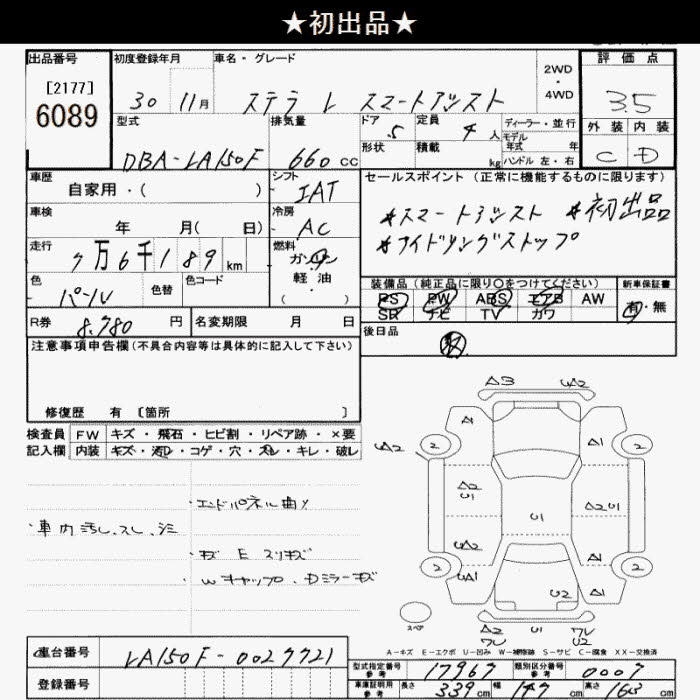 ★初出品★
出品番号
[2177]
6089
初度登録年月
30 11月
車名・グレード
ステラ L スマートアシスト
2WD
・
4WD
評価点
3.5
外装 内装
C D
型式
DBA-LA150F
排気量
660 CC
ドア
5
形状
定員
4 人
積載
kg
ディーラー・並行
モデル
年式 年
ハンドル 左・右
車歴
自家用・( )
シフト
IAT
セールスポイント (正常に機能するものに限ります)
*スマートアシスト *初出品
*アイドリングストップ
車検
年 月( 日)
冷房
AC
走行
7万6千189km
燃料
ガソリン
軽油
・
( )
色
パール
色替
色コード
装備品 (純正品に限り○をつけてください)
PS PW ABS エアB AW
SR ナビ TV カワ
新車保証書
有・無
R券
8.780 円
名変期限 月 日
後日品
注意事項申告欄(不具合内容等は具体的に記入して下さい)
修復歴 有 [箇所 ]
検査員 FW キズ・飛石・ヒビ割・リペア跡・×要
記入欄 内装 キズ・汚レ・コゲ・穴・スレ・キレ・破レ
・エンドパネル曲リ
・車内汚し、スレ、シミ
・キズ E スリキズ
・Wキャップ、Dミラーキズ
A3 UA2
A1 A1
UA2 2 2
A2
U1
A2 U1
U1
UA2 A1
2 UA1 2
U2 A1
スペア
A2 U1 ワレ
ワレ U2
A-キズ E-エクボ U-凹み W-補修跡 S-サビ C-腐食 XX-交換済
車台番号
LA150F-0027721
登録番号
型式指定番号
参考
17967
類別区分番号
参考
0007
車庫証明用
参考
長さ 339 cm 幅 147 cm 高さ 163 cm